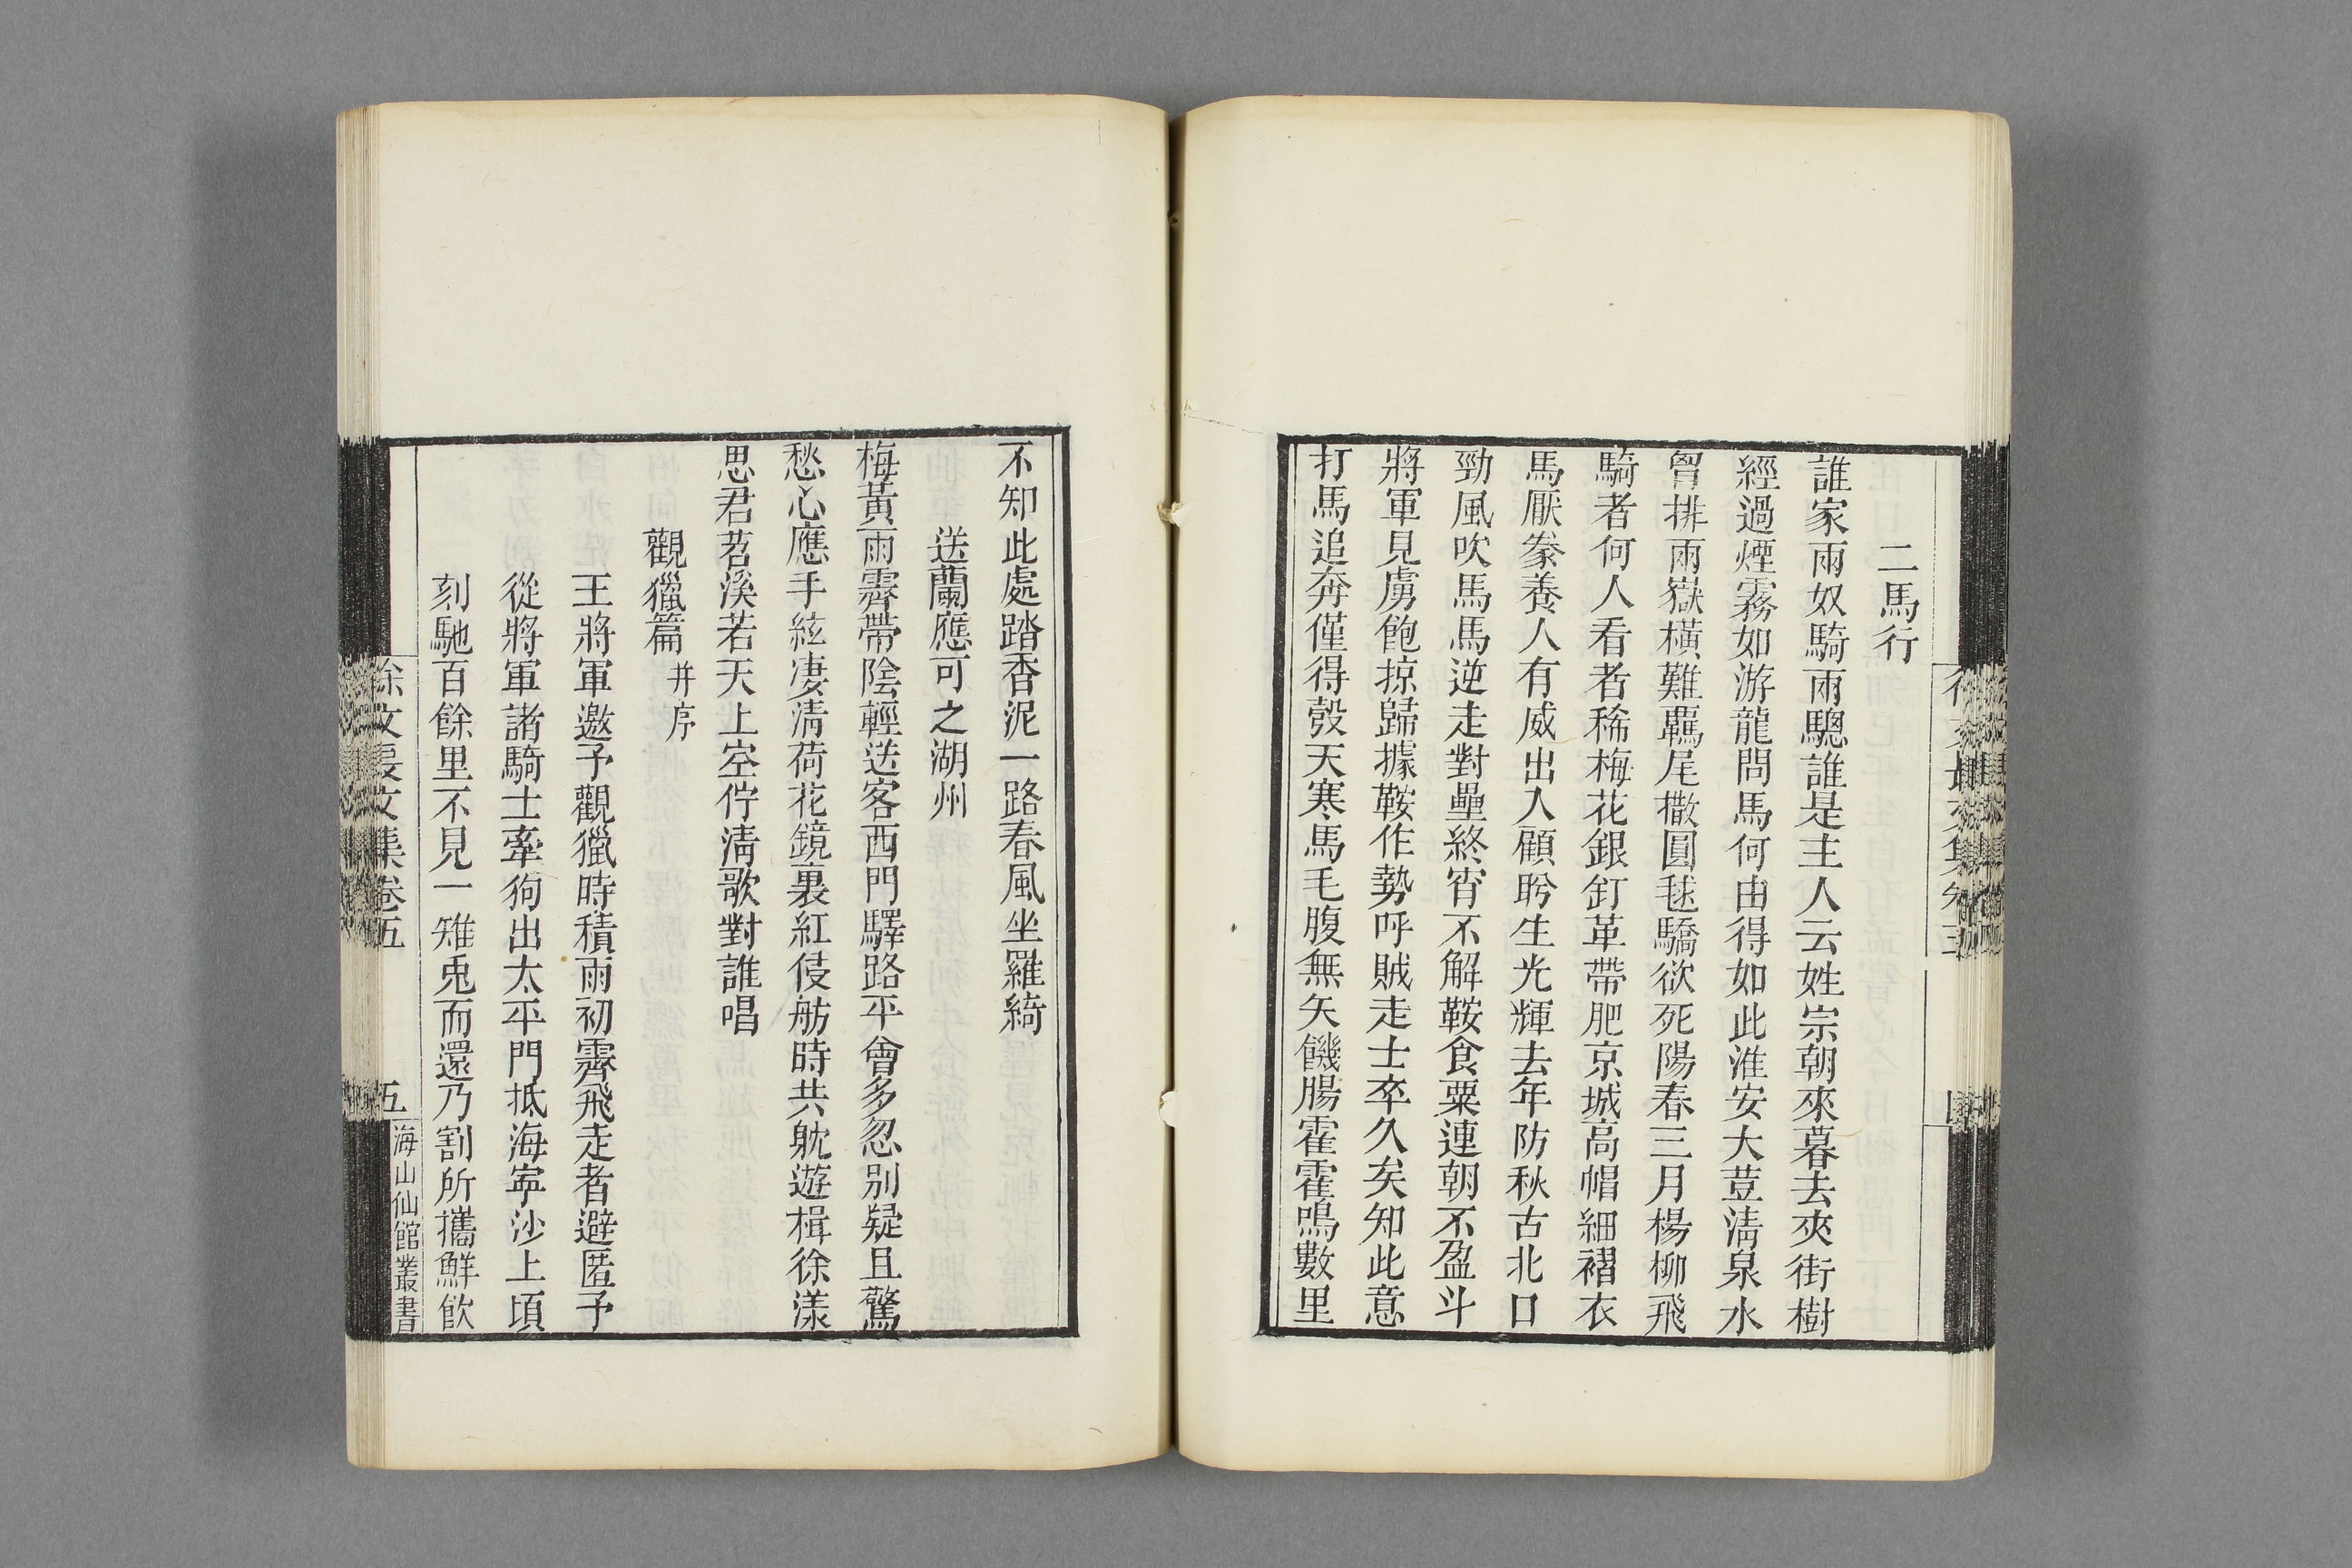 二馬行
誰家兩奴騎兩驄誰是主人云姓宗朝來暮去夾街樹
經過煙霧如游龍問馬何由得如此淮安大荳淸泉水
曾排兩嶽橫難羈尾撒圓毬驕欲死陽春三月楊柳飛
騎者何人看者稀梅花銀釘革帶肥京城高帽細褶衣
馬厭豢養人有威出入顧盼生光輝去年防秋古北口
勁風吹馬馬逆走對壘終宵不解鞍食粟連朝不盈斗
將軍見虜飽掠歸據鞍作勢呼賊走士卒久矣知此意
打馬追奔僅得彀天寒馬毛腹無矢饑腸霍霍鳴數里
不知此處踏香泥一路春風坐羅綺
送蘭應可之湖州
梅黃雨霽帶陰輕送客西門驛路平會多忽別疑且驚
愁心應手絃凄淸荷花鏡裏紅侵舫時共躭遊楫徐漾
思君苕溪若天上空佇淸歌對誰唱
觀獵篇 并序
王將軍邀予觀獵時積雨初霽飛走者避匿予
從將軍諸騎士牽狗出太平門抵海寧沙上頃
刻馳百餘里不見一雉兎而還乃割所攜鮮飮
徐文長文集卷五
五
海山仙館叢書